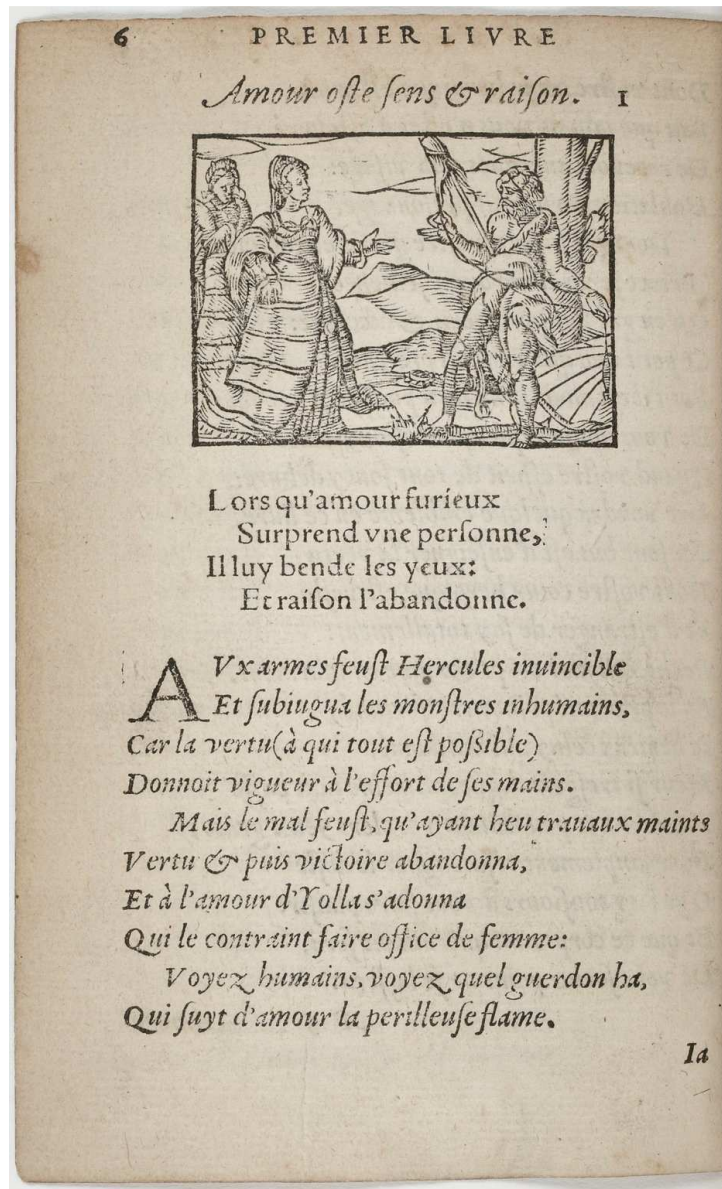 6 PREMIER LIVRE
Amour oſte ſens & raiſon. 1
Lors qu'amour furieux
Surprend vne perſonne,
Il luy bende les yeux:
Et raiſon l'abandonne.
AVx armes feuſt Hercules inuincible
Et ſubiugua les monſtres inhumains,
Car la vertu (à qui tout eſt poſsible)
Donnoit vigueur à l'effort de ſes mains.
Mais le mal feuſt, qu'ayant heu trauaux maints
Vertu & puis victoire abandonna,
Et à l'amour d'Yolla s'adonna
Qui le contraint faire office de femme:
Voyez humains, voyez quel guerdon ha,
Qui ſuyt d'amour la perilleuſe flame.
Ia